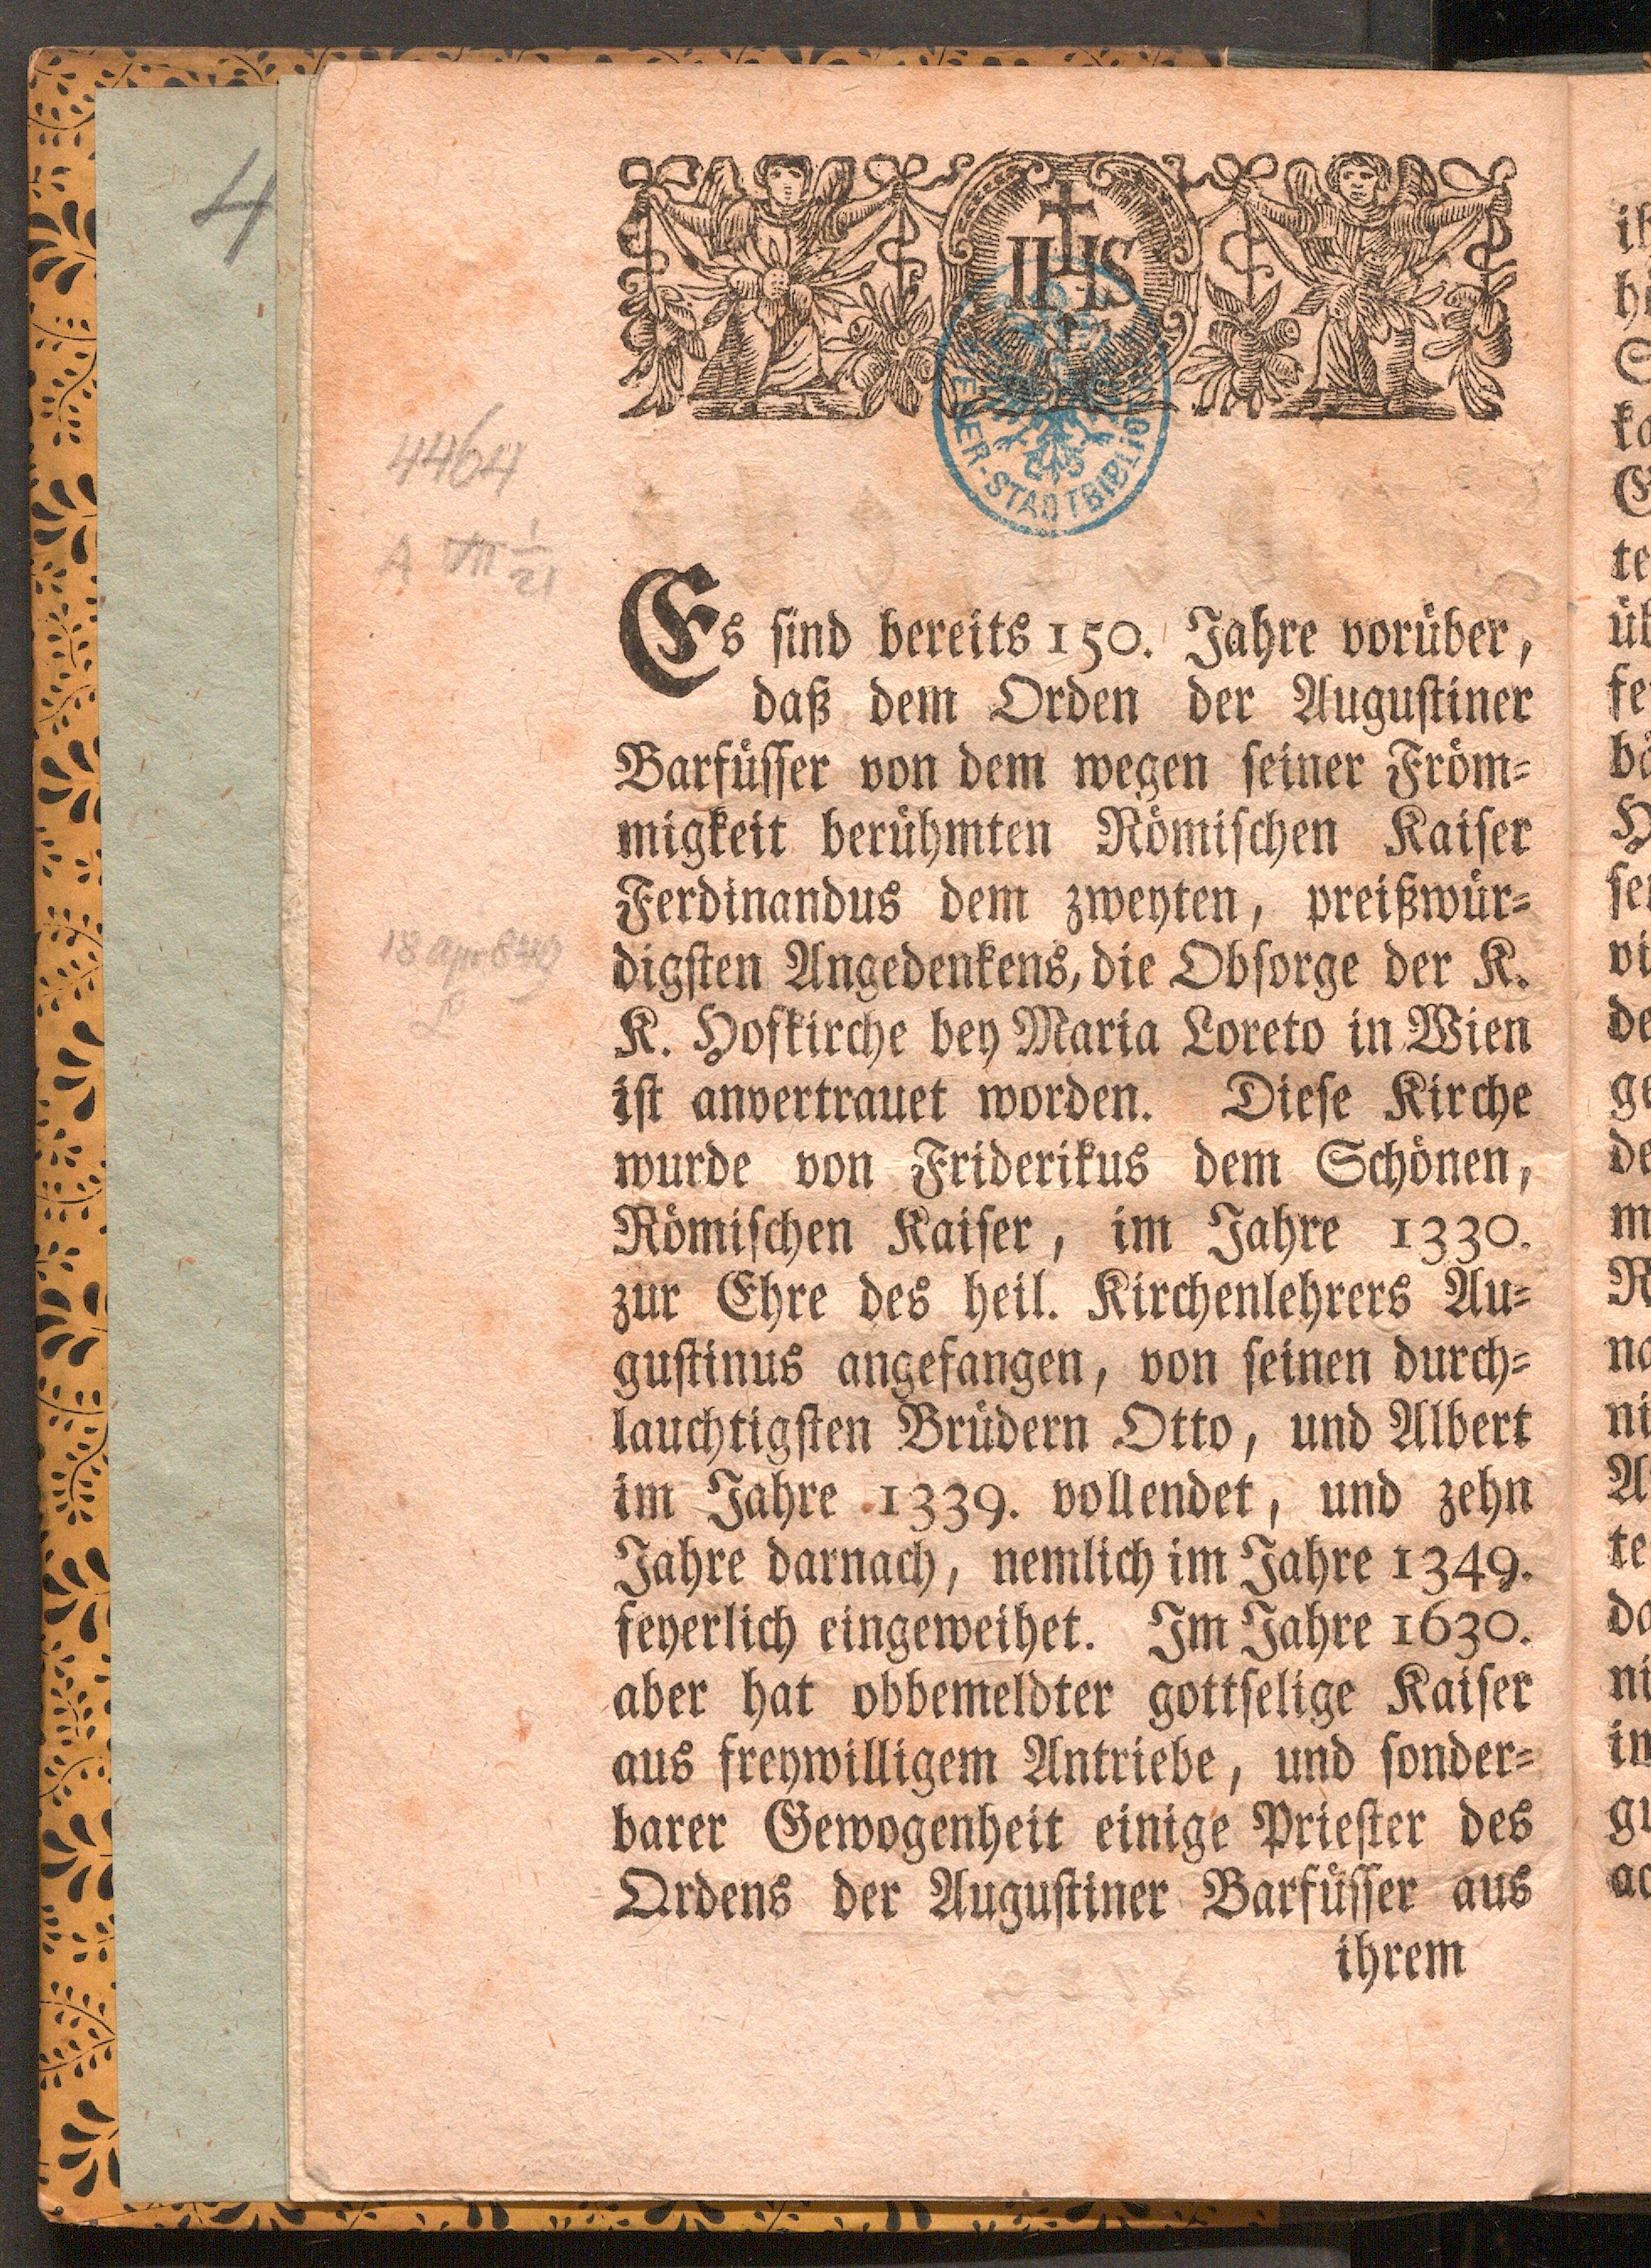 4
IHS
WIENER-STADTBIBLIOTHEK
4464
Es sind bereits 150. Jahre vorüber,
daß dem Orden der Augustiner
Barfüsser von dem wegen seiner Fröm=
migkeit berühmten Römischen Kaiser
Ferdinandus dem zweyten, preißwür=
digsten Angedenkens, die Obsorge der K.
K. Hofkirche bey Maria Loreto in Wien
ist anvertrauet worden. Diese Kirche
wurde von Friderikus dem Schönen,
Römischen Kaiser, im Jahre 1330.
zur Ehre des heil. Kirchenlehrers Au=
gustinus angefangen, von seinen durch=
lauchtigsten Brüdern Otto, und Albert
im Jahre 1339. vollendet, und zehn
Jahre darnach, nemlich im Jahre 1349.
feyerlich eingeweihet. Im Jahre 1630.
aber hat obbemeldter gottselige Kaiser
aus freywilligem Antriebe, und sonder=
barer Gewogenheit einige Priester des
Ordens der Augustiner Barfüsser aus
ihrem